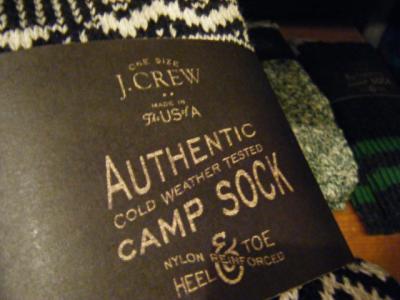 ONE SIZE
J.CREW
MADE IN
The USA
AUTHENTIC
COLD WEATHER TESTED
CAMP SOCK
NYLON REINFORCED
HEEL & TOE
AUTHENTIC
CAMP SOCK